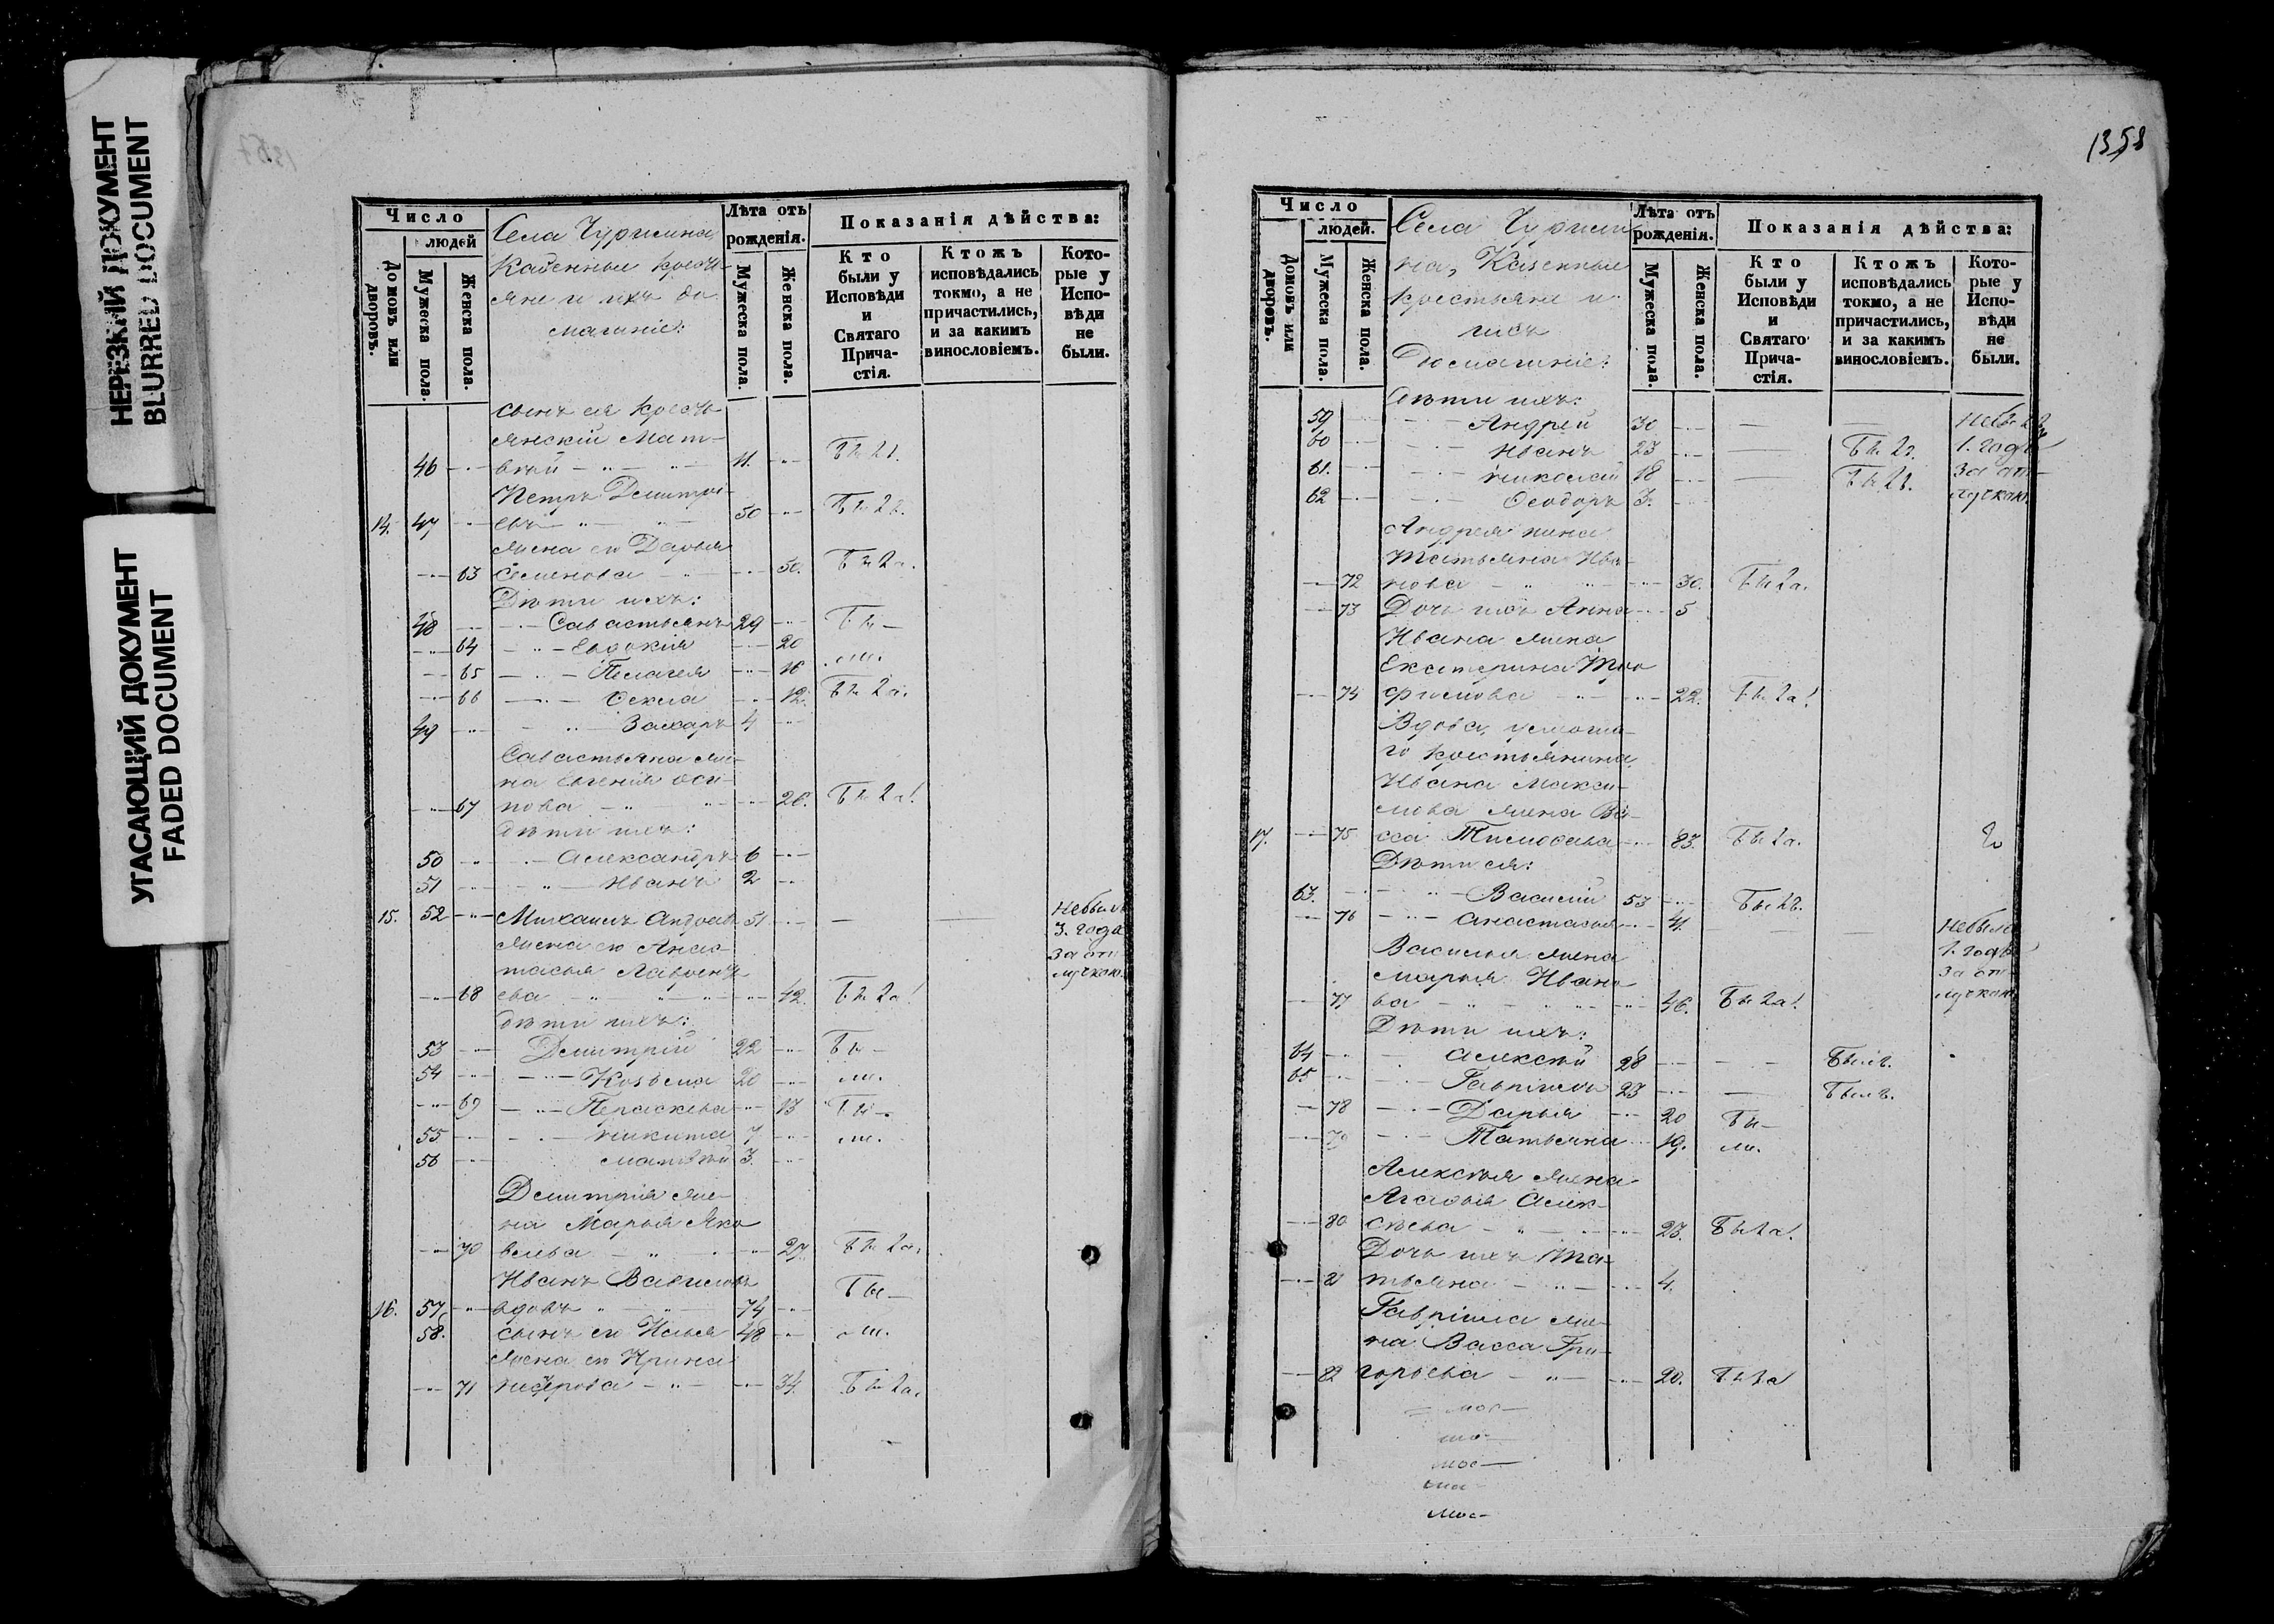 НЕРЕЗКИЙ ДОКУМЕНТ
BLURRED DOCUMENT
УГАСАЮЩИЙ ДОКУМЕНТ
FADED DOCUMENT
Число
людей
Домовъ или дворовъ.
Мужеска пола.
Женска пола.
Села Чурилина,
Казенные кресть-
яне и ихъ до
машніе:
Лѣта отъ рожденія.
Мужеска пола.
Женска пола.
Показанія дѣйства:
Кто были у Исповѣди и Святаго Прича-стія.
Ктожъ исповѣдались токмо, а не причастились, и за какимъ винословіемъ.
Кото-рые у Испо-вѣди не были.
сынъ ея кресть
янскій Мат-
46 вѣй 11. былъ.
Петръ Димитрі-
14. 47 евъ 50 былъ.
жена его Дарья
63 Семенова 50. была.
Дѣти ихъ:
48 Савастьянъ 29 бы-
64 Евдокія 20
65 Пелагея 16 ли.
66 Ѳекла 12. была.
49 Захаръ 4
Савастьяна же-
на Евгенія Оси-
67 пова 26. была.
дѣти ихъ:
50 Александръ 6
51 Иванъ 2
15. 52 Михаилъ Андреевъ 51 Небылъ
3. года
за от
лучкою.
жена его Анас-
тасья Лаврентъ
68 ева 42. была.
дѣти ихъ:
53 Димитрій 22 бы-
54 Козьма 20 ли.
69 Параскева 13 бы-
55 Никита 7 ли.
56 Матвѣй 3.
Димитрія же-
на Марья Яко
70 влева 27. была.
Иванъ Вавиловъ
16. 57. вдовъ 74 бы-
58. сынъ его Илья 48 ли.
жена его Ирина
71 34. была.
1358
Число
людей.
Домовъ или дворовъ.
Мужеска пола.
Женска пола.
Села Чурили
на, Казенные
крестьяне и
ихъ
Домашніе:
Лѣта отъ рожденія.
Мужеска пола.
Женска пола.
Показанія дѣйства:
Кто были у Исповѣди и Святаго Прича-стія.
Ктожъ исповѣдались токмо, а не причастились, и за какимъ винословіемъ.
Кото-рые у Испо-вѣди не были.
Дѣти ихъ:
59 Андрей 30 Небылъ
60 Иванъ 23 былъ. 1. годъ
61. Николай 18 былъ. за от-
62 Ѳеодоръ 3. лучкою.
Андрея жена
Татьяна Ива-
72 нова 30. была.
73 Дочь ихъ Анна 5
Ивана жена
Екатерина Тро
74 фимова 22. была.
Вдова, умерша-
го крестьянина
Ивана Макси-
мова жена Ва-
17. 75 сса Тимоѳева 83. была.
Дѣти ея:
63. Василій 53 былъ.
76 Анастасья 41. Небыла
1. годъ
за от-
лучкою
Василья жена
Марья Ивано
77 ва 46. была.
Дѣти ихъ:
64 Алексѣй 28 былъ.
65. Гавріилъ 23 былъ.
78 Дарья 20 бы-
79 Татьяна 19. ли.
Алексѣя жена
Агаѳья Алек-
80 сѣева 23. была.
Дочь ихъ Та-
тьяна 4.
Гавріила же-
на Васса Гри-
82 горьева 20. была